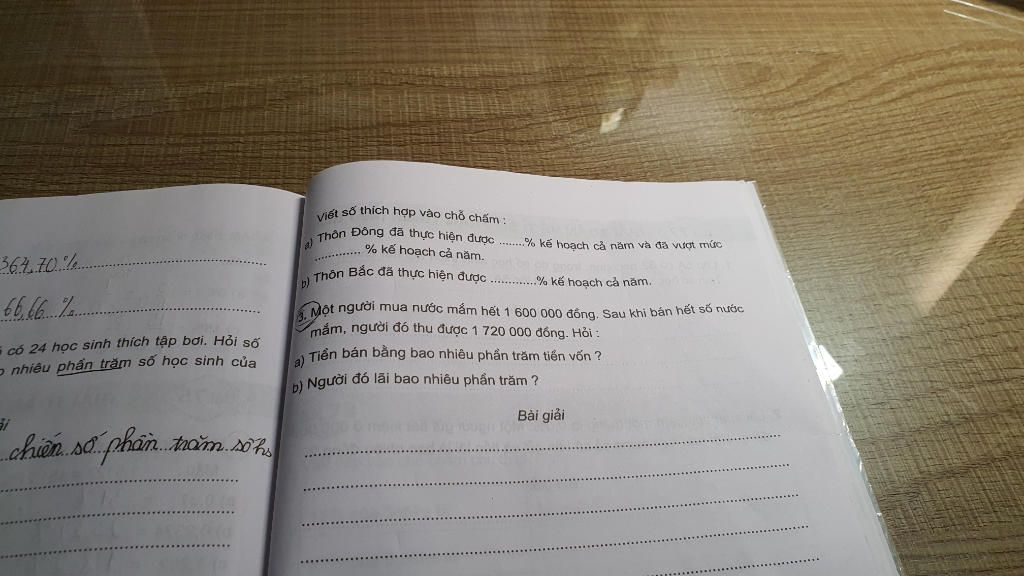 364,70%
66,66 %
có 24 học sinh thích tập bơi. Hỏi số
nhiêu phần trăm số học sinh của
chiến số phần trăm số hs
Viết số thích hợp vào chỗ chấm :
a) Thôn Đông đã thực hiện được ........% kế hoạch cả năm và đã vượt mức
............. % kế hoạch cả năm.
b) Thôn Bắc đã thực hiện được .............% kế hoạch cả năm.
3. Một người mua nước mắm hết 1 600 000 đồng. Sau khi bán hết số nước
mắm, người đó thu được 1 720 000 đồng. Hỏi :
a) Tiền bán bằng bao nhiêu phần trăm tiền vốn ?
b) Người đó lãi bao nhiêu phần trăm ?
Bài giải